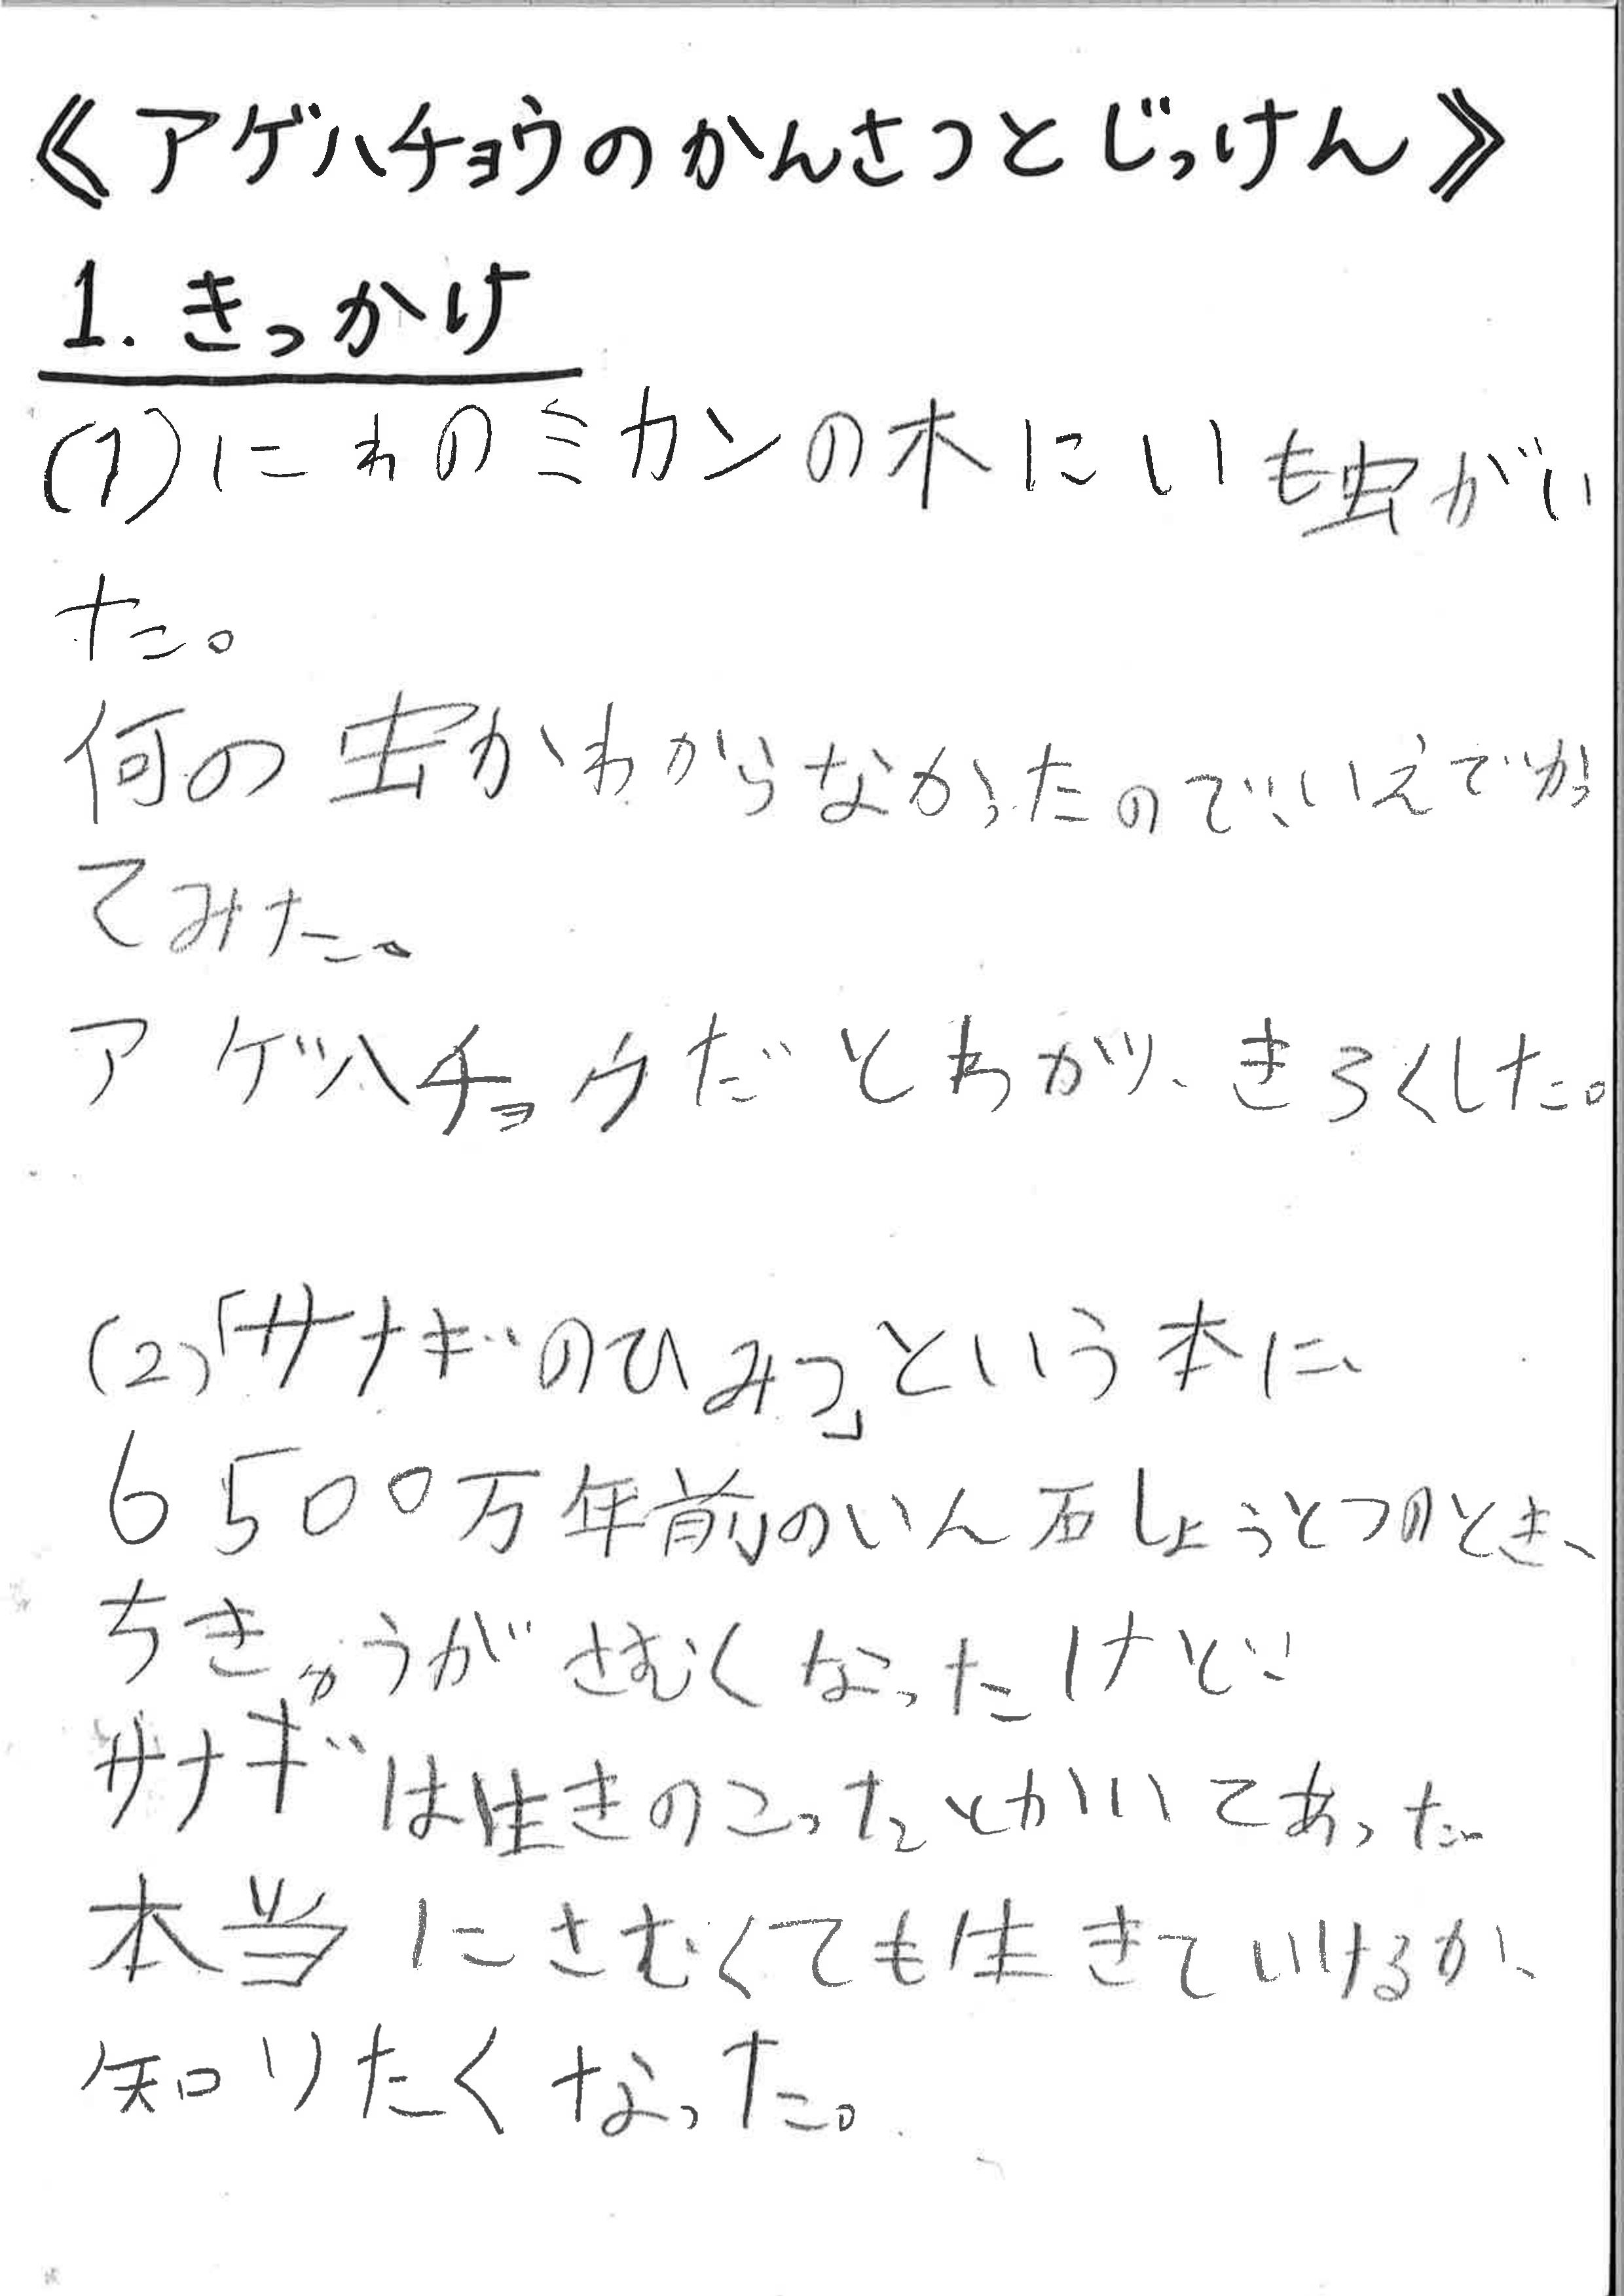 《アゲハチョウのかんさつとじっけん》
1. きっかけ
(1)にわのミカンの木にいも虫がい
た。
何の虫かわからなかったので、いえでかっ
てみた。
アゲハチョウだとわかり、きろくした。
(2)「サナギのひみつ」という本に、
6500万年前のいん石しょうとつのとき、
ちきゅうがさむくなったけど
サナギは生きのこったとかいてあった
本当にさむくても生きていけるか、
知りたくなった。